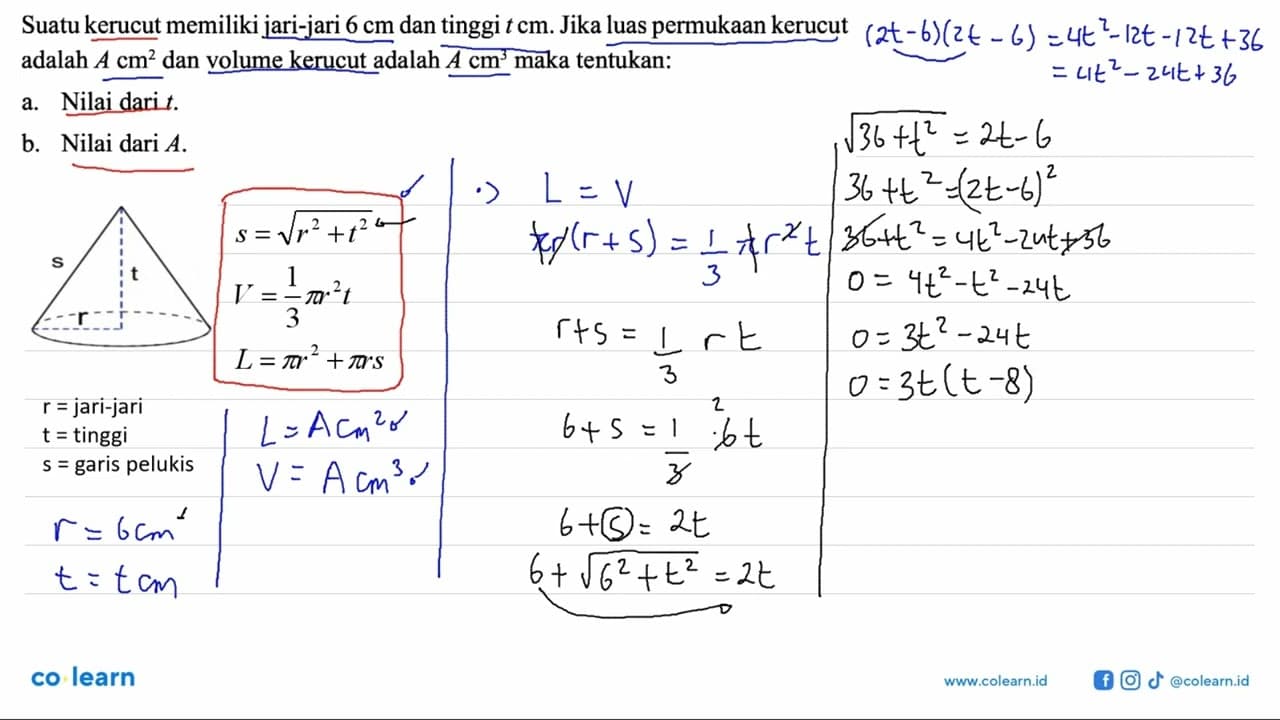 Suatu kerucut memiliki jari-jari 6 cm dan tinggi t cm. Jika luas permukaan kerucut
adalah A cm² dan volume kerucut adalah A cm³ maka tentukan:
a. Nilai dari t.
b. Nilai dari A.
(2t-6)(2t-6) = 4t²-12t-12t+36
= 4t²-24t+36
s
t
r
s = √r² + t²
V = 1/3 πr²t
L = πr² + πrs
r = jari-jari
t = tinggi
s = garis pelukis
r = 6cm
t = t cm
L = A cm²
V = A cm³
L = V
πr(r+s) = 1/3 πr²t
r+s = 1/3 r t
6+s = 1/3 · 6t
2
6+s = 2t
6+√6²+t² = 2t
√36+t² = 2t-6
36+t² = (2t-6)²
36+t² = 4t²-24t+36
0 = 4t²-t²-24t
0 = 3t²-24t
0 = 3t(t-8)
co learn
www.colearn.id
@colearn.id